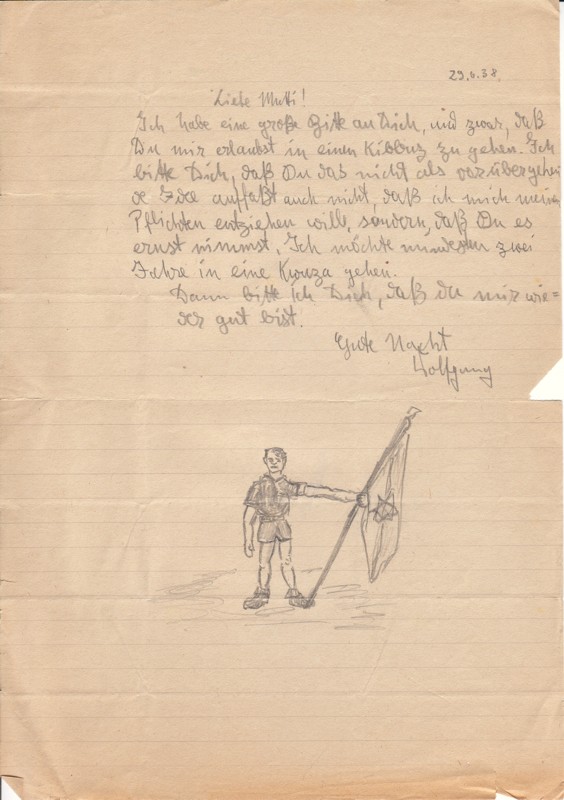 29.6.38.
Liebe Mutti!
Ich habe eine große Bitte an Dich, und zwar, daß
Du mir erlaubst in einen Kibbuz zu gehen. Ich
bitte Dich, daß Du das nicht als vorübergehen
de Idee auffaßt auch nicht, daß ich mich meinen
Pflichten entziehen will, sondern, daß Du es
ernst nimmst. Ich möchte mindesten zwei
Jahre in eine Kwuza gehen.
Dann bitte ich Dich, daß du mir wie=
der gut bist.
Gute Nacht
Wolfgang